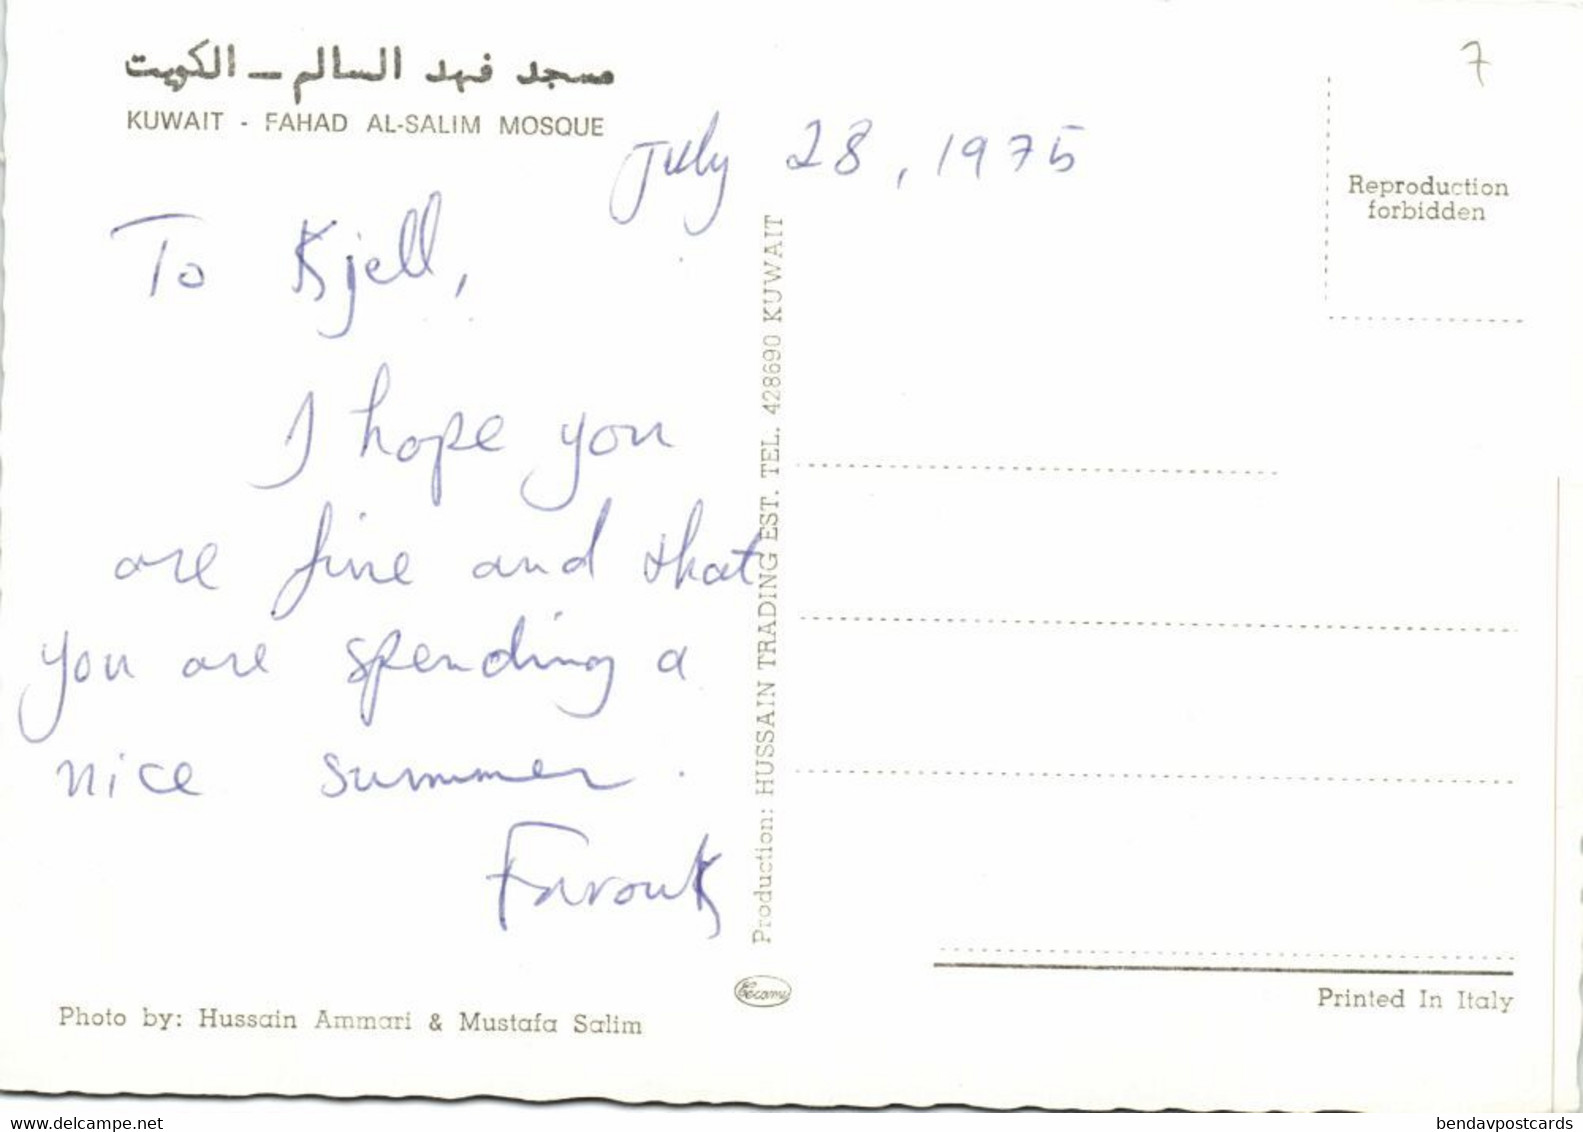 مسجد فهد السالم - الكويت
KUWAIT - FAHAD AL-SALIM MOSQUE
7
July 28, 1975
Reproduction
forbidden
To Kjell,
I hope you
are fine and that
you are spending a
nice summer.
Farouk
Production: HUSSAIN TRADING EST. TEL. 428690 KUWAIT
Photo by: Hussain Ammari & Mustafa Salim
Printed In Italy
www.delcampe.net
bendavpostcards